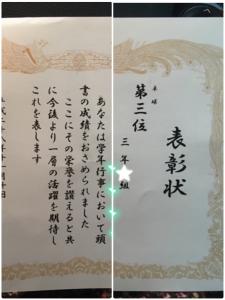 表彰状
卓球
第三位
三年 組
あなたは学年行事において頭
書の成績をおさめられました
ここにその栄誉を讃えると共
に今後より一層の活躍を期待し
これを表します